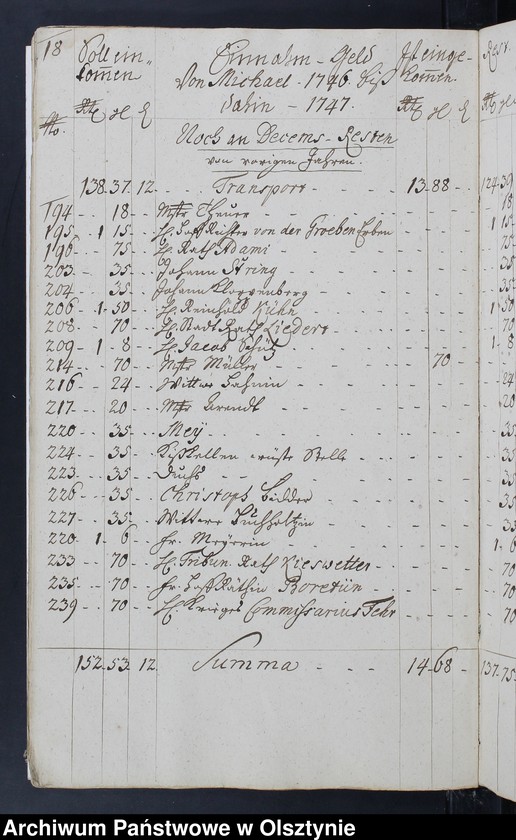 18 Soll ein- Einnahm - Geld Ist einge-
kom̄en Von Michael - 1746. biß kom̄en. Rest.
dahin - 1747.
No. Rtl gl ₰ Rtl gl ₰ Rtl gl
Noch an Decems-Resten
von vorigen Jahren.
138. 37. 12 Transport 13. 88 124. 39
194 18 Mstr 18
195 1 15 H. von der Groeben Erben 1 15
196 75 H. Rath Adami 75
203 35 Johann String 35
204 35 Johann Kloppenberg 35
206 1 50 H. Reinhold Kühn 1 50
208 70 H. Stadt Rath Liedert 70
209 1 8 H. Jacob Schütz 1 8
214 70 Mstr Müller 70
216 24 Wittwe 24
217 20 Mstr Arendt 20
220 35 Meÿ 35
224 35 wüste Stelle 35
223 35 35
226 35 Christoph Bidder 35
227 35 Wittwe Buchholtzin 35
220 1 6 Fr. Meÿerin 1 6
233 70 H. Tribun. Rath Kieswetter 70
235 70 Fr. Räthin Boretiin 70
239 70 H. Krieges Commissarius Fehr 70
152. 53. 12 Summa 14. 68 137. 75
Archiwum Państwowe w Olsztynie